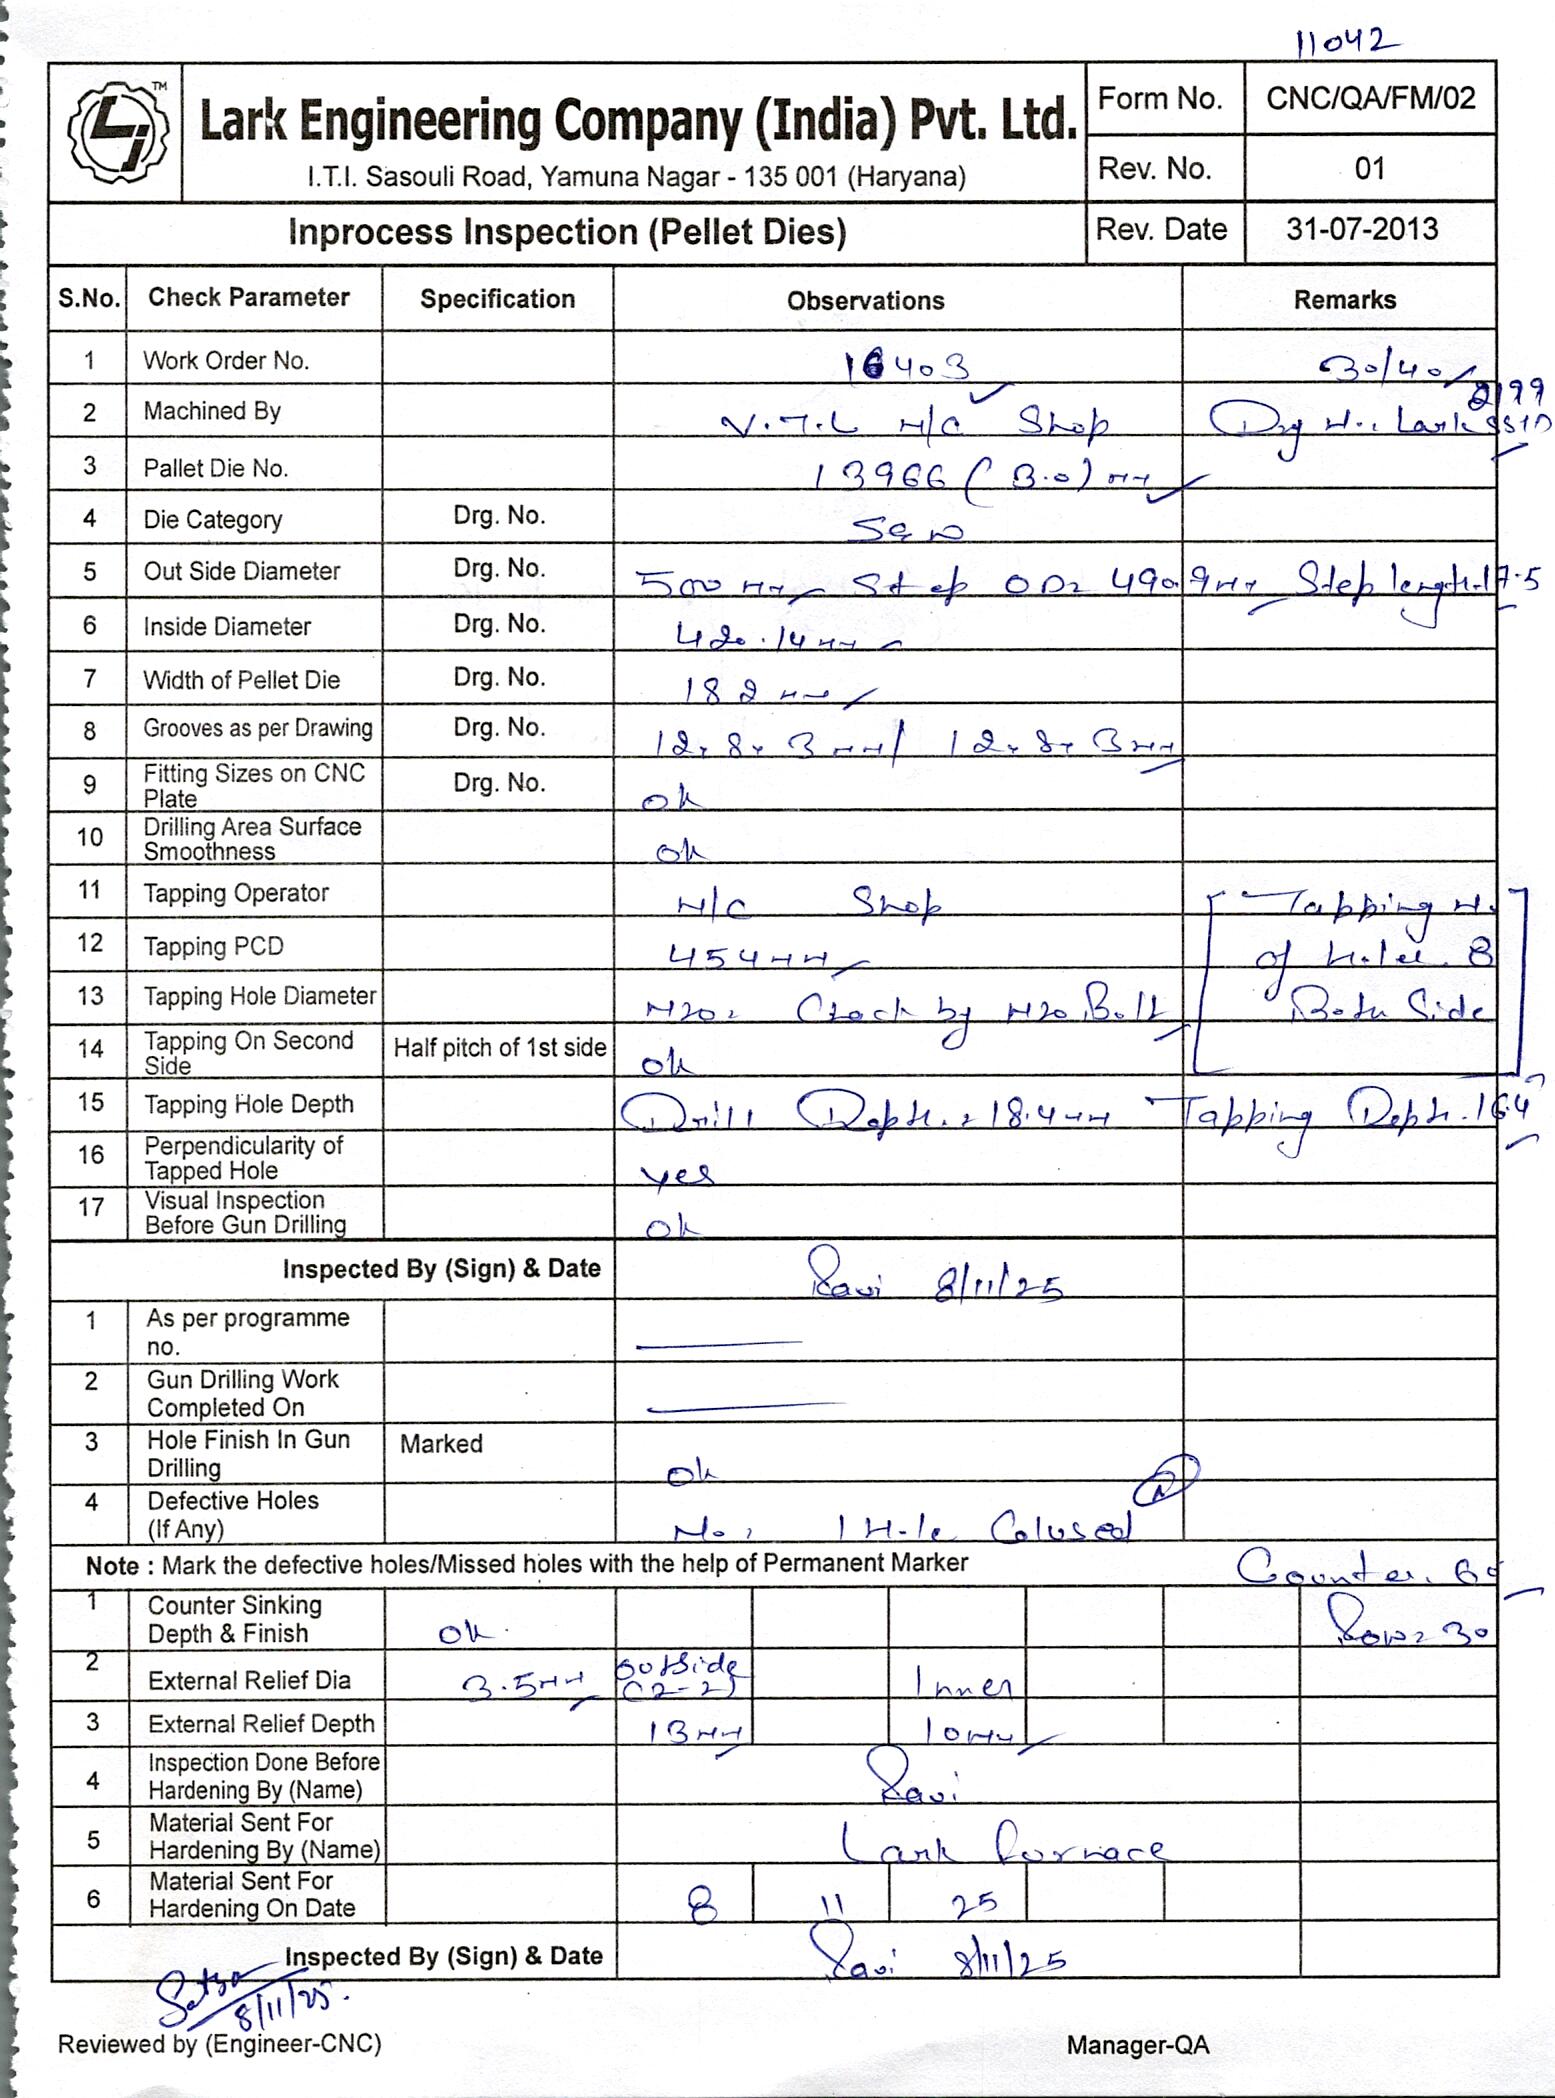 11042
TM
Lark Engineering Company (India) Pvt. Ltd.
I.T.I. Sasouli Road, Yamuna Nagar - 135 001 (Haryana)
Form No. CNC/QA/FM/02
Rev. No. 01
Inprocess Inspection (Pellet Dies) Rev. Date 31-07-2013
S.No. Check Parameter Specification Observations Remarks
1 Work Order No. 16403 30/40
2 Machined By V.T.L M/C Shop Drg No. Lark
3 Pallet Die No. 13966 (3.0) mm
4 Die Category Drg. No.
5 Out Side Diameter Drg. No. 500 mm Step OD= 490.9mm Step length.17.5
6 Inside Diameter Drg. No. 420.14mm
7 Width of Pellet Die Drg. No. 182 mm
8 Grooves as per Drawing Drg. No. 12x8x3mm/ 12x8x3mm
9 Fitting Sizes on CNC Plate Drg. No. ok
10 Drilling Area Surface Smoothness ok
11 Tapping Operator M/C Shop Tapping No.
12 Tapping PCD 454mm of Holes. 8
13 Tapping Hole Diameter M20= Check by M20 Bolt Both Side
14 Tapping On Second Side Half pitch of 1st side ok
15 Tapping Hole Depth Drill Depth.=18.4mm Tapping Depth.16.4
16 Perpendicularity of Tapped Hole yes
17 Visual Inspection Before Gun Drilling ok
Inspected By (Sign) & Date Ravi 8/11/25
1 As per programme no.
2 Gun Drilling Work Completed On
3 Hole Finish In Gun Drilling Marked ok
4 Defective Holes (If Any) No. 1 Hole Colused
Note : Mark the defective holes/Missed holes with the help of Permanent Marker Counter. 60
1 Counter Sinking Depth & Finish ok. Row= 30
2 External Relief Dia 3.5mm outside (2-2) Inner
3 External Relief Depth 13mm 10mm
4 Inspection Done Before Hardening By (Name) Ravi
5 Material Sent For Hardening By (Name) Lark furnace
6 Material Sent For Hardening On Date 8 11 25
Inspected By (Sign) & Date Ravi 8/11/25
8/11/25.
Reviewed by (Engineer-CNC) Manager-QA